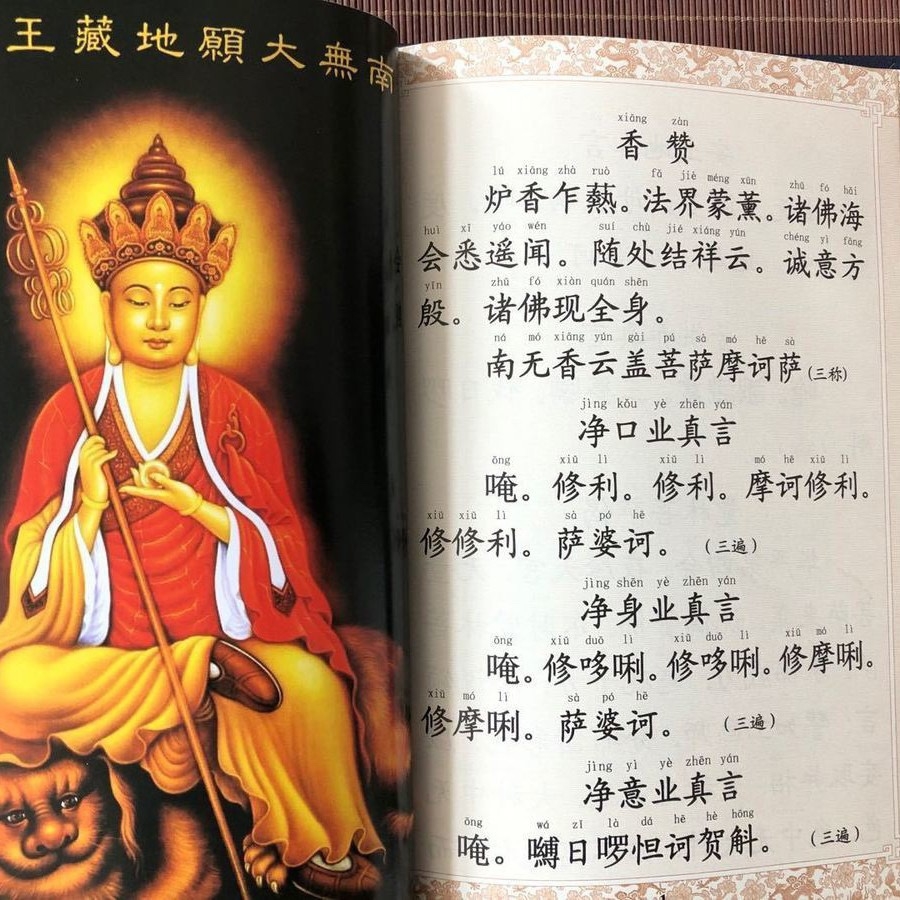 南無大願地藏王
xiāng zàn
香赞
lú xiāng zhà ruò fǎ jiè méng xūn zhū fó hǎi
炉香乍爇。法界蒙薰。诸佛海
huì xī yáo wén suí chù jié xiáng yún chéng yì fōng
会悉遥闻。随处结祥云。诚意方
yīn zhū fó xiàn quán shēn
殷。诸佛现全身。
ná mó xiāng yún gài pú sà mó hē sà
南无香云盖菩萨摩诃萨(三称)
jìng kǒu yè zhēn yán
净口业真言
ōng xiū lì xiū lì mó hē xiū lì
唵。修利。修利。摩诃修利。
xiū xiū lì sà pó hē
修修利。萨婆诃。(三遍)
jìng shēn yè zhēn yán
净身业真言
ōng xiū duō lì xiū duō lì xiū mó lì
唵。修哆唎。修哆唎。修摩唎。
xiū mó lì sà pó hē
修摩唎。萨婆诃。(三遍)
jìng yì yè zhēn yán
净意业真言
ōng wá zī là dá hē hè hōng
唵。嚩日啰怛诃贺斛。(三遍)